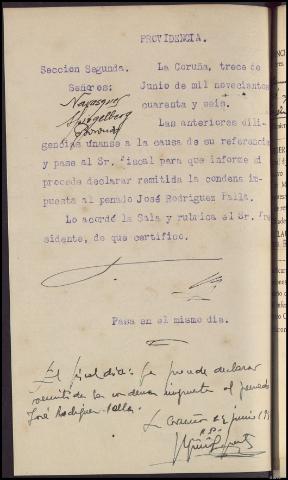 PROVIDENCIA.
Sección Segunda. La Coruña, trece de
Señores: Junio de mil novecientos
cuarenta y seis.
Spiegelberg
Las anteriores dili-
gencias únanse a la causa de su referencia
y pase al Sr. fiscal para que informe si
procede declarar remitida la condena im-
puesta al penado José Rodríguez Falla.
Lo acordó la Sala y rubrica el Sr. Pre-
sidente, de que certifico.
Pasa en el mismo día.
El fiscal dice: Que procede declarar
remitida la condena impuesta al penado
José Rodríguez Falla.
La Coruña Junio